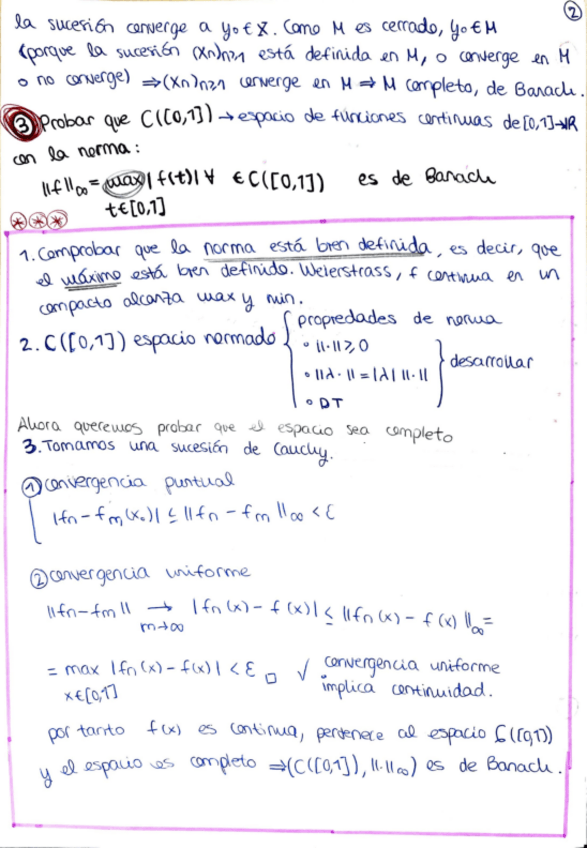 ②
la sucesión converge a y₀ ∈ X. Como M es cerrado, y₀ ∈ M
(porque la sucesión (xn)n≥1 está definida en M, o converge en M
o no converge) ⇒ (xn)n≥1 converge en M ⇒ M completo, de Banach.
③ Probar que C([0,1]) → espacio de funciones continuas de [0,1]→ℝ
con la norma:
||f||∞ = max |f(t)| ∀ ∈ C([0,1]) es de Banach
t∈[0,1]
1. Comprobar que la norma está bien definida, es decir, que
el máximo está bien definido. Weierstrass, f continua en un
compacto alcanza max y min.
2. C([0,1]) espacio normado { propiedades de norma
• ||·|| ≥ 0
• ||λ·|| = |λ| ||·|| } desarrollar
• DT
Ahora queremos probar que el espacio sea completo
3. Tomamos una sucesión de Cauchy.
① convergencia puntual
|fn - fm(x₀)| ≤ ||fn - fm||∞ < ε
② convergencia uniforme
||fn-fm|| → |fn(x) - f(x)| ≤ ||fn(x) - f(x)||∞ =
m→∞
= max |fn(x) - f(x)| < ε □ √ convergencia uniforme
x∈[0,1] implica continuidad.
por tanto f(x) es continua, pertenece al espacio C([0,1])
y el espacio es completo ⇒ (C([0,1]), ||·||∞) es de Banach.